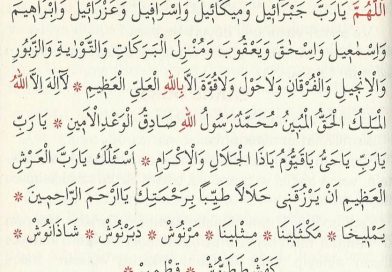 اَللّٰهُمَّ يَارَبَّ جَبْرَائِيلَ وَمِيكَائِيلَ وَاِسْرَافِيلَ وَعَزْرَائِيلَ وَاِبْرَاهِيمَ
وَاِسْمٰعِيلَ وَاِسْحٰقَ وَيَعْقُوبَ وَمُنْزِلَ الْبَرَكَاتِ وَالتَّوْرٰيةِ وَالزَّبُورِ
وَالْاِنْجِيلِ وَالْفُرْقَانِ وَلَاحَوْلَ وَلَاقُوَّةَ اِلَّا بِاللهِ الْعَلِيِّ الْعَظِيمِ * لَآاِلٰهَ اِلَّا اللهُ
الْمَلِكُ الْحَقُّ الْمُبِينُ مُحَمَّدٌ رَسُولُ اللهِ صَادِقُ الْوَعْدِ الْاَمِينِ * يَا رَبِّ
يَارَبِّ يَاحَيُّ يَاقَيُّومُ يَاذَا الْجَلَالِ وَالْاِكْرَامِ * اَسْئَلُكَ يَارَبَّ الْعَرْشِ
الْعَظِيمِ اَنْ يَرْزُقَنِى حَلَالًا طَيِّبًا بِرَحْمَتِكَ يَااَرْحَمَ الرَّاحِمِينَ *
يَمْلِيخَا * مَكْثَلِينَا * مِثْلِينَا * مَرْنُوشْ * دَبَرْنُوشْ * شَاذَنُوشْ *